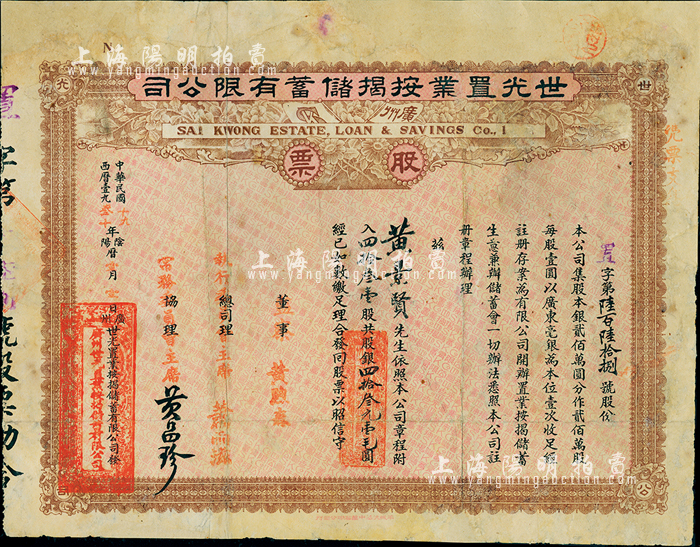 上海陽明拍賣
www.yangmingauction.com
世光置業按揭儲蓄有限公司
廣州
SAI KWONG ESTATE, LOAN & SAVINGS Co., l
股票
置字第陸百陸拾捌號股份
本公司集股本銀貳佰萬圓分作貳佰萬股
每股壹圓以廣東毫銀為本位壹次收足經
註册存案為有限公司開辦置業按揭儲蓄
生意兼辦儲蓄會一切辦法悉照本公司註
册章程辦理
茲
黃景賢先生依照本公司章程附
股共股銀四拾叁元壹毛圓
經已如數繳足理合發回股票以昭信守
董事
總司理
協理
主席
中華民國十九
西曆壹九叁十年
陰陽曆
月
日
廣州世光置業按揭儲蓄有限公司發
上海陽明拍賣
www.yangmingauction.com
上海陽明拍賣
www.yangmingauction.com
世
光
公
司